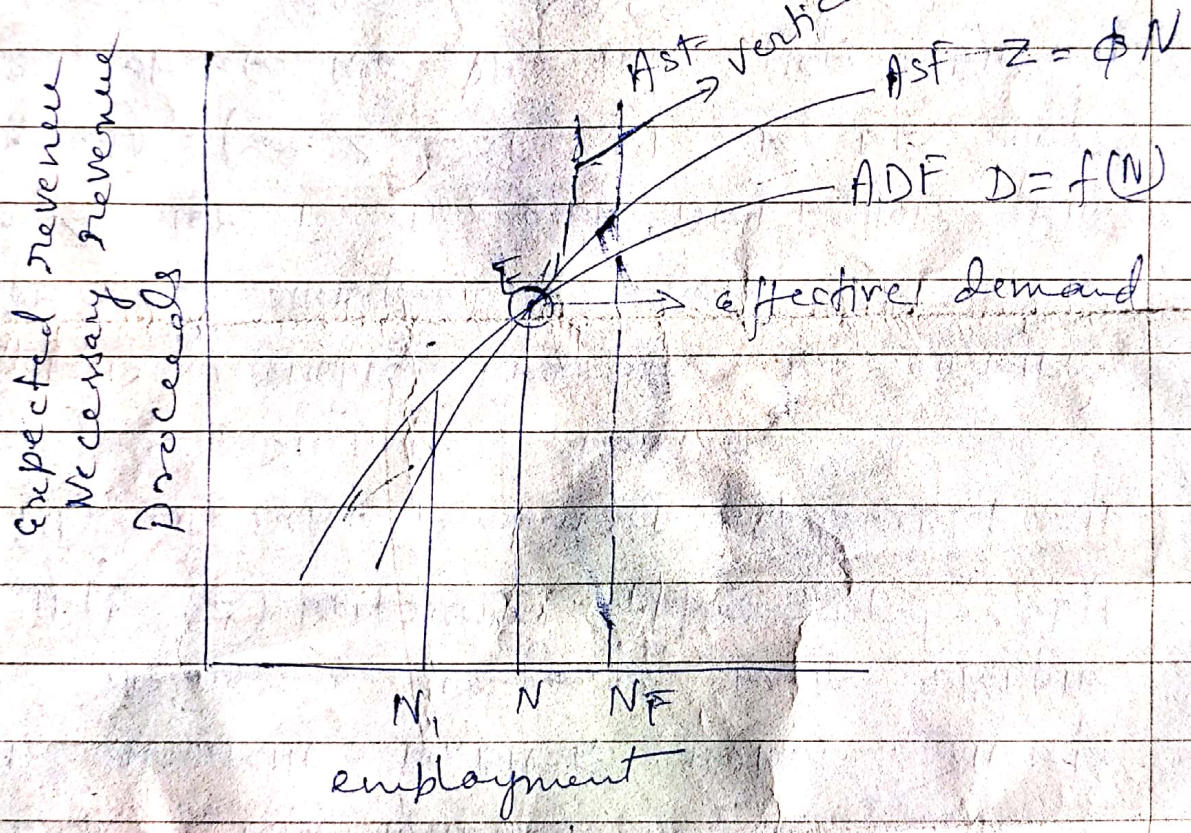 Expected revenue
Necessary revenue
Proceeds
Asf
ASF Z = ϕN
ADF D = f(N)
E
effective demand
N1
N
NF
employment